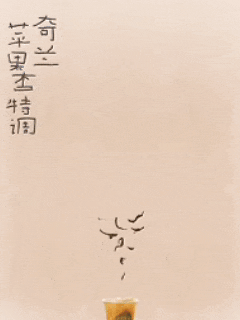 奇兰
苹果杏特调